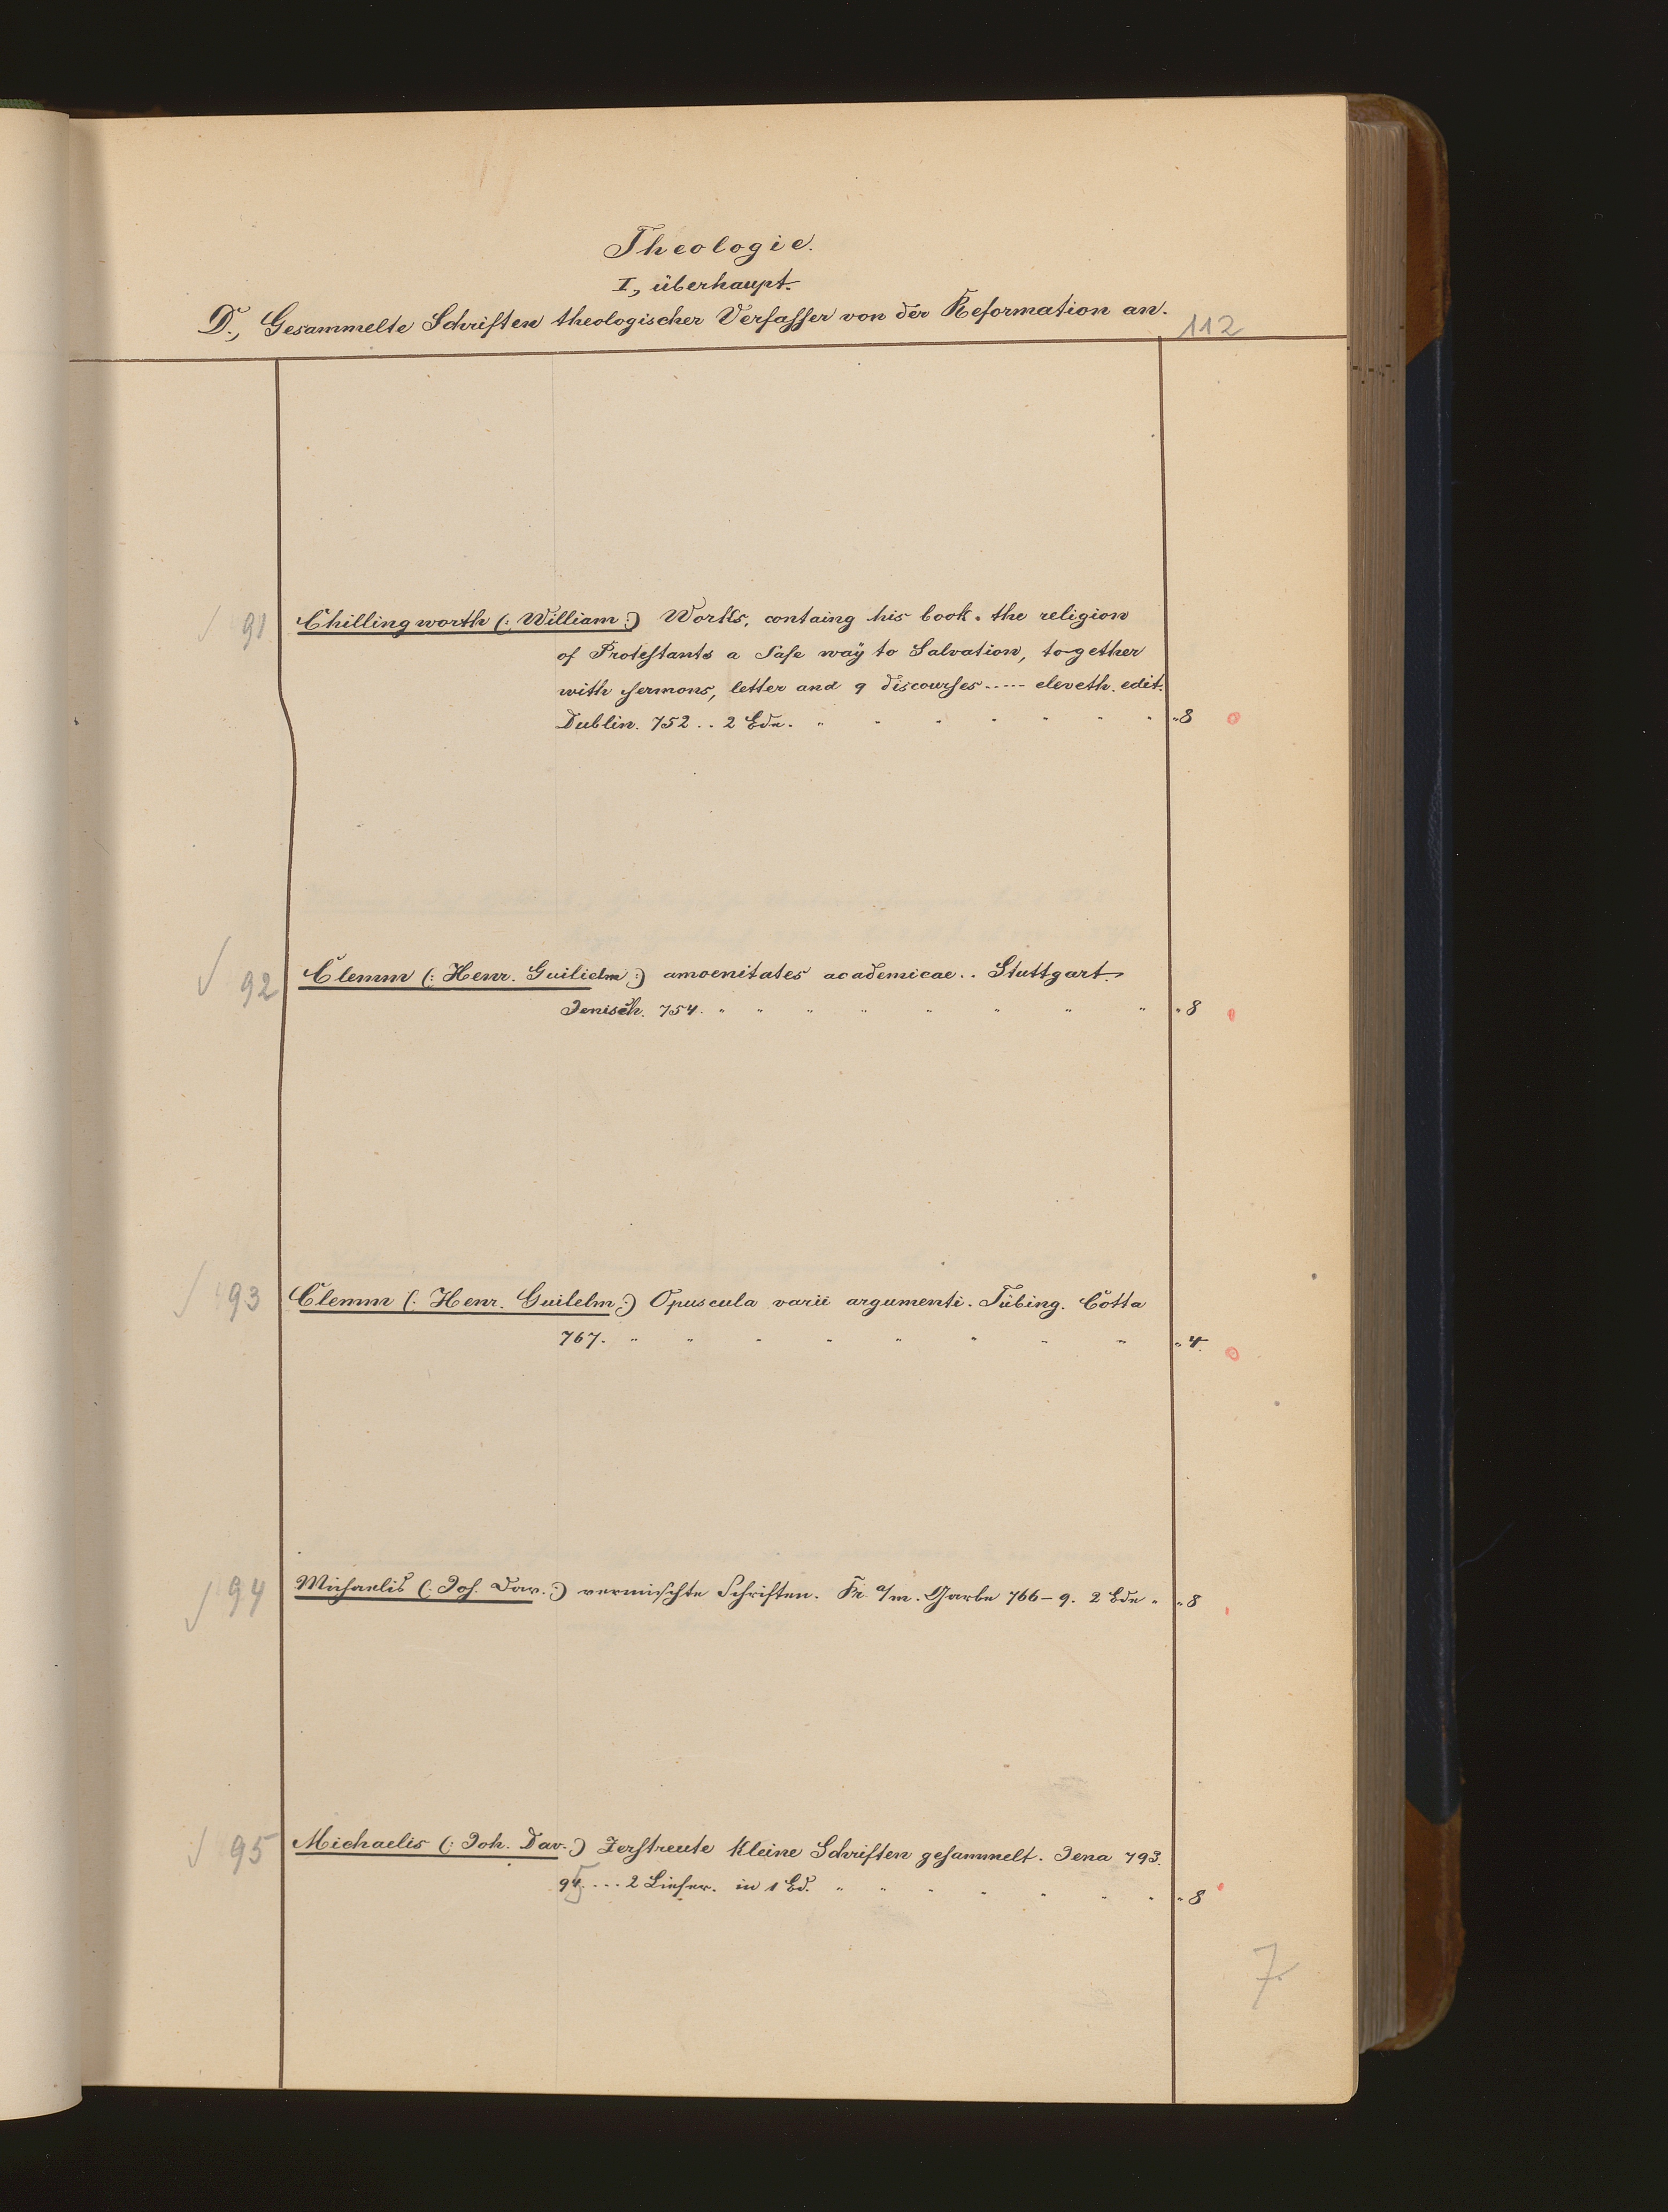 Theologie.
I, überhaupt.
D., Gesammelte Schriften theologischer Verfasser von der Reformation an.
112
91 Chillingworth (: William :) Works, containg his book. the religion
of Protestants a Safe way to Salvation, together
with sermons, letter and 9 discourses ..... eleveth. edit.
Dublin. 752 .. 2 Bde. " " " " " " " " 8
92 Clemm (: Henr. Guilielm :) amoenitates academicae .. Stuttgart.
Jenisch. 754. " " " " " " " " " 8
93 Clemm (: Henr. Guilelm :) Opuscula varii argumenti. Tübing. Cotta
767. " " " " " " " " " 4.
94 Michaelis (: Joh. Dav. :) vermischte Schriften. Fr. a/m. Garbe 766-9. 2 Bde " " 8
95 Michaelis (: Joh. Dav. :) Zerstreute kleine Schriften gesammelt. Jena 793.
94. ... 2 Liefer. in 1 Bd. " " " " " " " " 8
7.